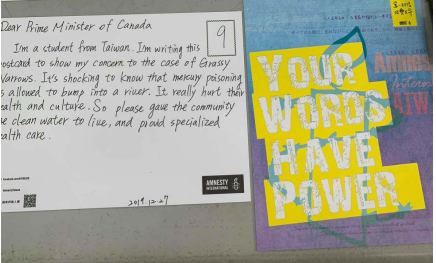 Dear Prime Minister of Canada
9
I'm a student from Taiwan. I'm writing this
ostcard to show my concern to the case of Grassy
Narrows. It's shocking to know that mercury poisoning
s allowed to bump into a river. It really hurt their
ealth and culture. So please gave the community
e clean water to live, and provid specialized
ealth care.
2019.12.27
AMNESTY
INTERNATIONAL
YOUR
WORDS
HAVE
POWER